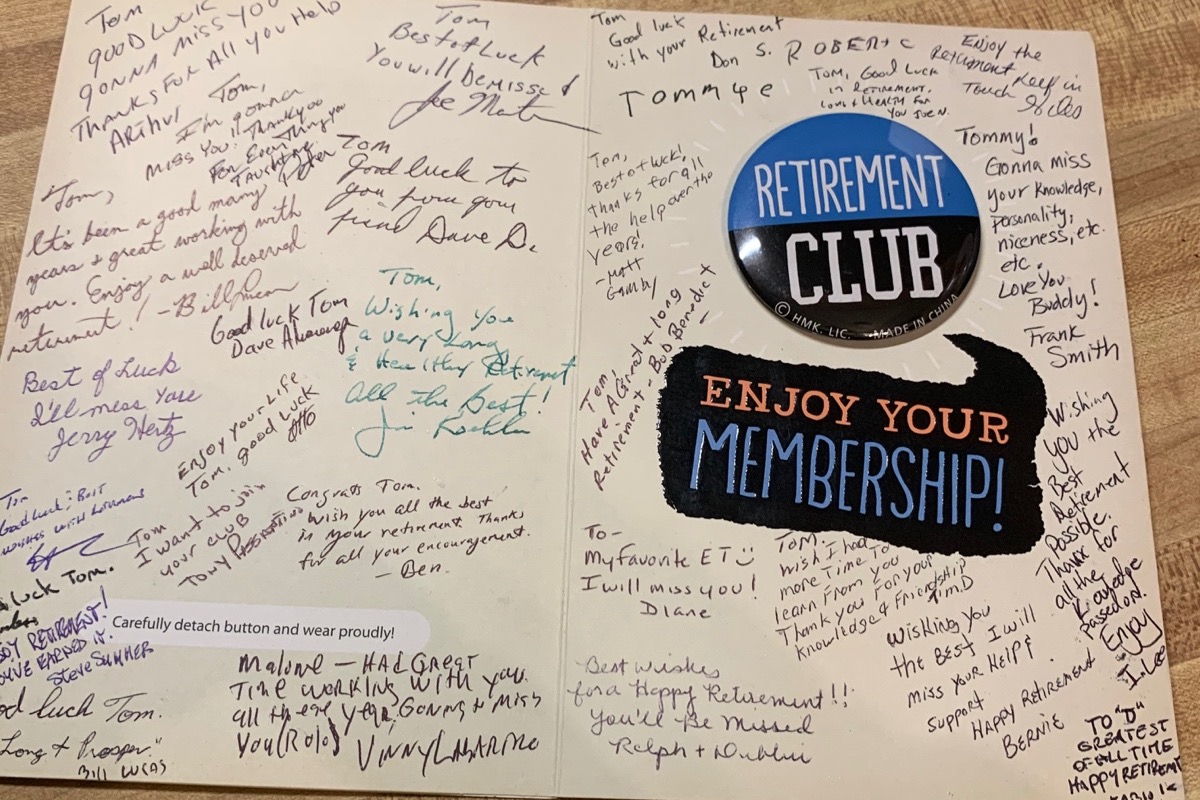 Tom
GOOD LUCK
GONNA MISS YOU
THANKS FOR ALL YOU Help
ARTHUR
Tom
Best of Luck
You will be missed
Tom,
I'm gonna
MISS YOU! Thank you
For Everything you
Taught me
Tom
Good luck to
you from your
friend Dave D.
Tom,
It's been a good many
years + great working with
you. Enjoy a well deserved
retirement! - Bill
Good luck Tom
Dave
Tom,
Wishing you
a very Long
& Healthy Retirement
All the Best!
Best of Luck
I'll miss You
Jerry Hertz
Enjoy your Life,
Tom, good Luck
Otto
Tom
Good Luck & Best
wishes with
Tom
I want to join
your CLUB
TONY
Congrats Tom.
Wish you all the best
in your retirement. Thanks
for all your encouragement.
- Ben.
luck Tom.
RETIREMENT!
EARNED IT.
STEVE SUMMER
Carefully detach button and wear proudly!
luck Tom.
Long + Prosper"
Bill LUCAS
Malone - HAD GREAT
TIME WORKING WITH YOU
all these years, Gonna Miss
You (Rolo)
Tom
Good luck
with your Retirement
Don S.
Tommye
Tom, Good Luck
in Retirement.
Love & Health For
You
Enjoy the
Retirement Keep in
Touch
Tommy!
Gonna miss
your Knowledge,
personality,
niceness, etc.
etc.
Love You
Buddy!
Frank
Smith
Tom,
Best of luck!
thanks for all
the help over the
years!
- Matt
Tom,
Have A Great + long
Retirement - Bob Benedict
RETIREMENT
CLUB
© HMK. LIC. MADE IN CHINA
ENJOY YOUR
MEMBERSHIP!
Wishing
you the
Best
Retirement
Possible.
Thanx for
all the
Knowledge
passed on.
Enjoy
I. Lee
To-
My Favorite ET
I will miss you!
Diane
Tom.
wish I had
more Time To
learn From you
Thank you For your
Knowledge & Friendship
Tim. D
Wishing You
the BEST I will
miss your Help &
support.
HAPPY RETIREMENT
BERNIE
Best Wishes
for a Happy Retirement!!
You'll Be Missed
Ralph +
TO "D"
GREATEST
OF ALL TIME